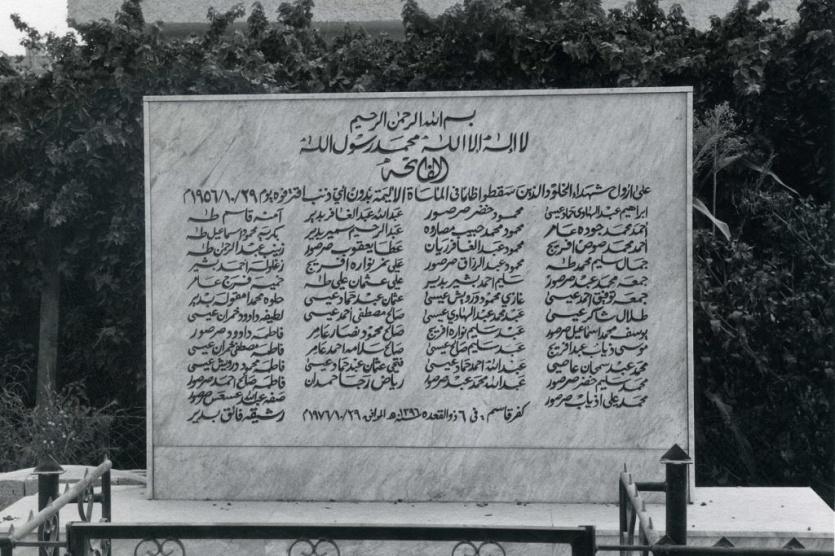 بسم الله الرحمن الرحيم
لا إله إلا الله محمد رسول الله
الفاتحة
على ارواح شهداء الخلود الذين سقطوا ظلما في المأساة الاليمة بدون أي ذنب اقترفوه يوم ١٩٥٦/١٠/٢٩م
ابراهيم عبد الهادي حماد عيسى
احمد محمد جوده عامر
احمد محمد صوص افريج
جمال سليم محمد طه
جمعه محمد عبد صرصور
جمعه توفيق احمد عيسى
طلال شاكر عيسى
يوسف محمد اسماعيل صرصور
موسى ذياب عبد افريج
محمد عبد سمحان عاصي
محمد سليم خضر صرصور
محمد علي اذياب صرصور
محمود خضر صرصور
محمود محمد حبيب مصاروه
محمود عبد الغافر ريان
محمود عبد الرزاق صرصور
سليم احمد بشير بدير
غازي محمود درويش عيسى
عبد محمد عبد الهادي عيسى
عبد سليم نواره افريج
عبد سليم صالح عيسى
عبد الله احمد حماد عيسى
عبد الله محمد عبد صرصور
عبد الله عبد الغافر بدير
عبد الرحيم سمير بدير
عطا يعقوب صرصور
علي نمر نواره افريج
علي عثمان علي طه
عثمان عبد حماد عيسى
صالح مصطفى احمد عيسى
صالح محمود نصار عامر
صالح سلامه احمد عامر
فتحي عثمان عبد حماد عيسى
رياض رجا حمدان
آمنه قاسم طه
بكريه محمود اسماعيل طه
زينب عبد الرحمن طه
زغلوله احمد بشير
خميسه فرج عامر
حلوه محمد امقبول بدير
لطيفه داوود حمران عيسى
فاطمه داوود صرصور
فاطمه مصطفى حمران عيسى
فاطمه محمود درويش عيسى
فاطمه صالح احمد صرصور
صفه عبد الله عسعس صرصور
رشيقه فائق بدير
كفر قاسم، في ٦ ذو القعده ١٣٩٦هـ الموافق ١٩٧٦/١٠/٢٩م